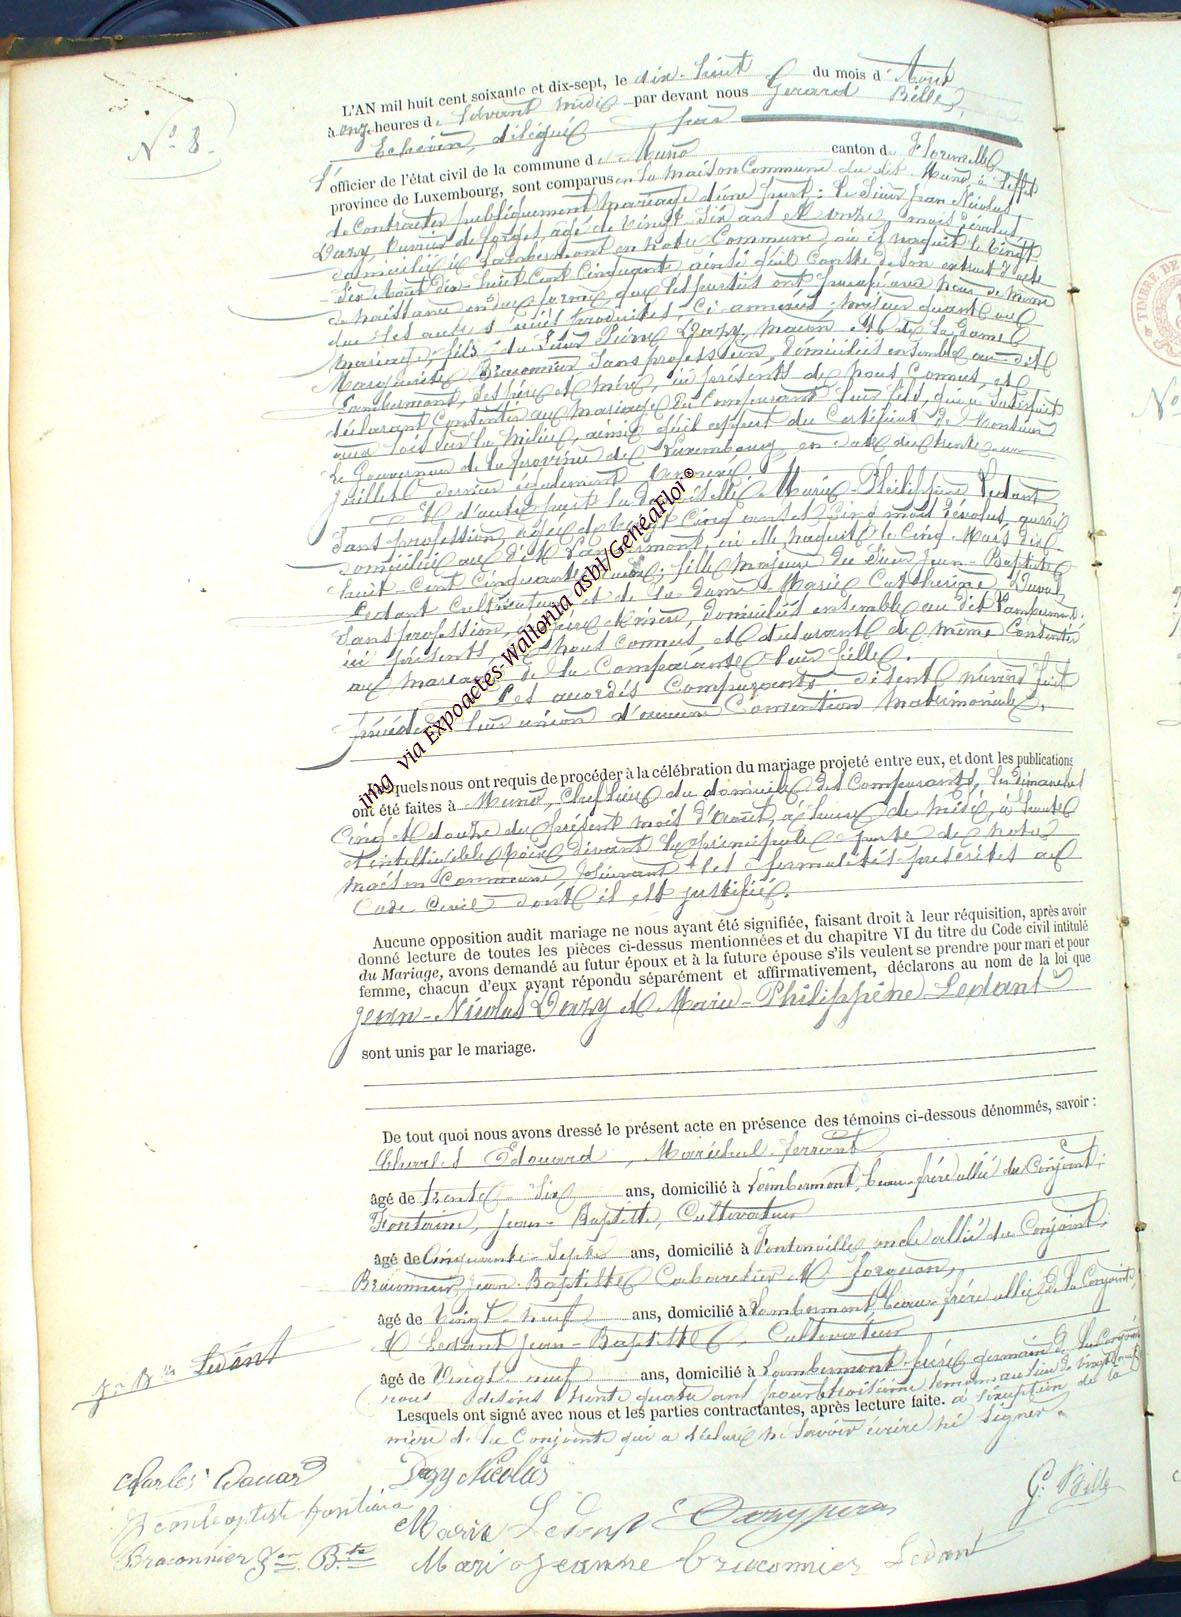 N° 8.
L'AN mil huit cent soixante et dix-sept, le dix-huit du mois d'Aout
à onze heures de devant midi par devant nous Gerard Bille,
Echevin, délégué pour
L'officier de l'état civil de la commune de Muno canton de Florenville
province de Luxembourg, sont comparus en la maison Commune du dit Muno, à l'effet
de Contracter publiquement mariage d'une part : le Sieur Jean Nicolas
Dazy, Ouvrier de forges, agé de Vingt Six ans et onze mois révolus,
domicilié à Lambermont en notre Commune où il naquit le Vingt
Six Août dix-huit Cent Cinquante, ainsi qu'il Conste de Son extrait d'acte
de naissance en due forme, que les parties ont par nous de même
que les autres pièces produites, Ci-annexés ; majeur quant au
mariage, fils du Sieur Pierre Dazy, maçon et de la Dame
Marguerite Braconnier Sans profession, domiciliés ensemble au dit
Lambermont, ses père et mère, ici présents de nous Connus, et
déclarant Consentir au mariage du Comparant leur fils, qui a Satisfait
aux lois sur la milice, ainsi qu'il appert du Certificat de Monsieur
Le Gouverneur de la province de Luxembourg, en date du trente
Juillet dernier également annexé.
Et d'autre part la Demoiselle Marie-Philippine Ledant,
Sans profession, agée de Vingt Cinq ans et Cinq mois révolus, aussi
domiciliée au dit Lambermont, où elle naquit le Cinq Mars dix-
huit-Cent Cinquante deux ; fille majeure du Sieur Jean-Baptiste
Ledant Cultivateur, et de la dame Marie Catherine Duval
Sans profession, père et mère, domiciliés ensemble au dit Lambermont ;
ici présents de nous Connus, et déclarant de même Consentir
au mariage de la Comparante leur fille.
Les accordés Comparants disent n'avoir fait
précéder leur union d'aucune Convention matrimoniale.
Lesquels nous ont requis de procéder à la célébration du mariage projeté entre eux, et dont les publications
ont été faites à Muno, Chef lieu du domicile des Comparants, les dimanches
Cinq et douze du présent mois d'Août, à heure de midi, à haute
et intelligible voix devant la principale porte de notre
maison Commune Suivant les formalités prescrites au
Code Civil dont il est justifié.
Aucune opposition audit mariage ne nous ayant été signifiée, faisant droit à leur réquisition, après avoir
donné lecture de toutes les pièces ci-dessus mentionnées et du chapitre VI du titre du Code civil intitulé
du Mariage, avons demandé au futur époux et à la future épouse s'ils veulent se prendre pour mari et pour
femme, chacun d'eux ayant répondu séparément et affirmativement, déclarons au nom de la loi que
Jean-Nicolas Dazy et Marie-Philippine Ledant
sont unis par le mariage.
De tout quoi nous avons dressé le présent acte en présence des témoins ci-dessous dénommés, savoir :
Charles Edouard, Maréchal ferrant,
âgé de trente-six ans, domicilié à Lambermont, beau-frère allié du Conjoint ;
Fontaine, Jean-Baptiste, Cultivateur
âgé de Cinquante-Sept ans, domicilié à Fontenoille, oncle allié du Conjoint.
Braconnier Jean-Baptiste Cabaretier et forgeron,
âgé de Vingt-neuf ans, domicilié à Lambermont, beau-frère allié de la Conjointe,
et Ledant Jean-Baptiste, Cultivateur
âgé de Vingt-neuf ans, domicilié à Lambermont frère germain de la Conjointe
(nous disons trente quatre ans pour troisième témoin au lieu de vingt neuf
Lesquels ont signé avec nous et les parties contractantes, après lecture faite. à l'exception de la
mère de la Conjointe qui a déclaré ne Savoir écrire ni Signer.
Jn Bte Ledant
Charles Edouard
Dazy Nicolas
G. Bille
Jeanbaptiste fontaine
Marie Ledant Dazy pierre
Braconnier Jean Bte
Marie jeanne braconnier Ledant
img via Expoactes-Wallonia asbl/GeneaFlor®
TIMBRE DE
No